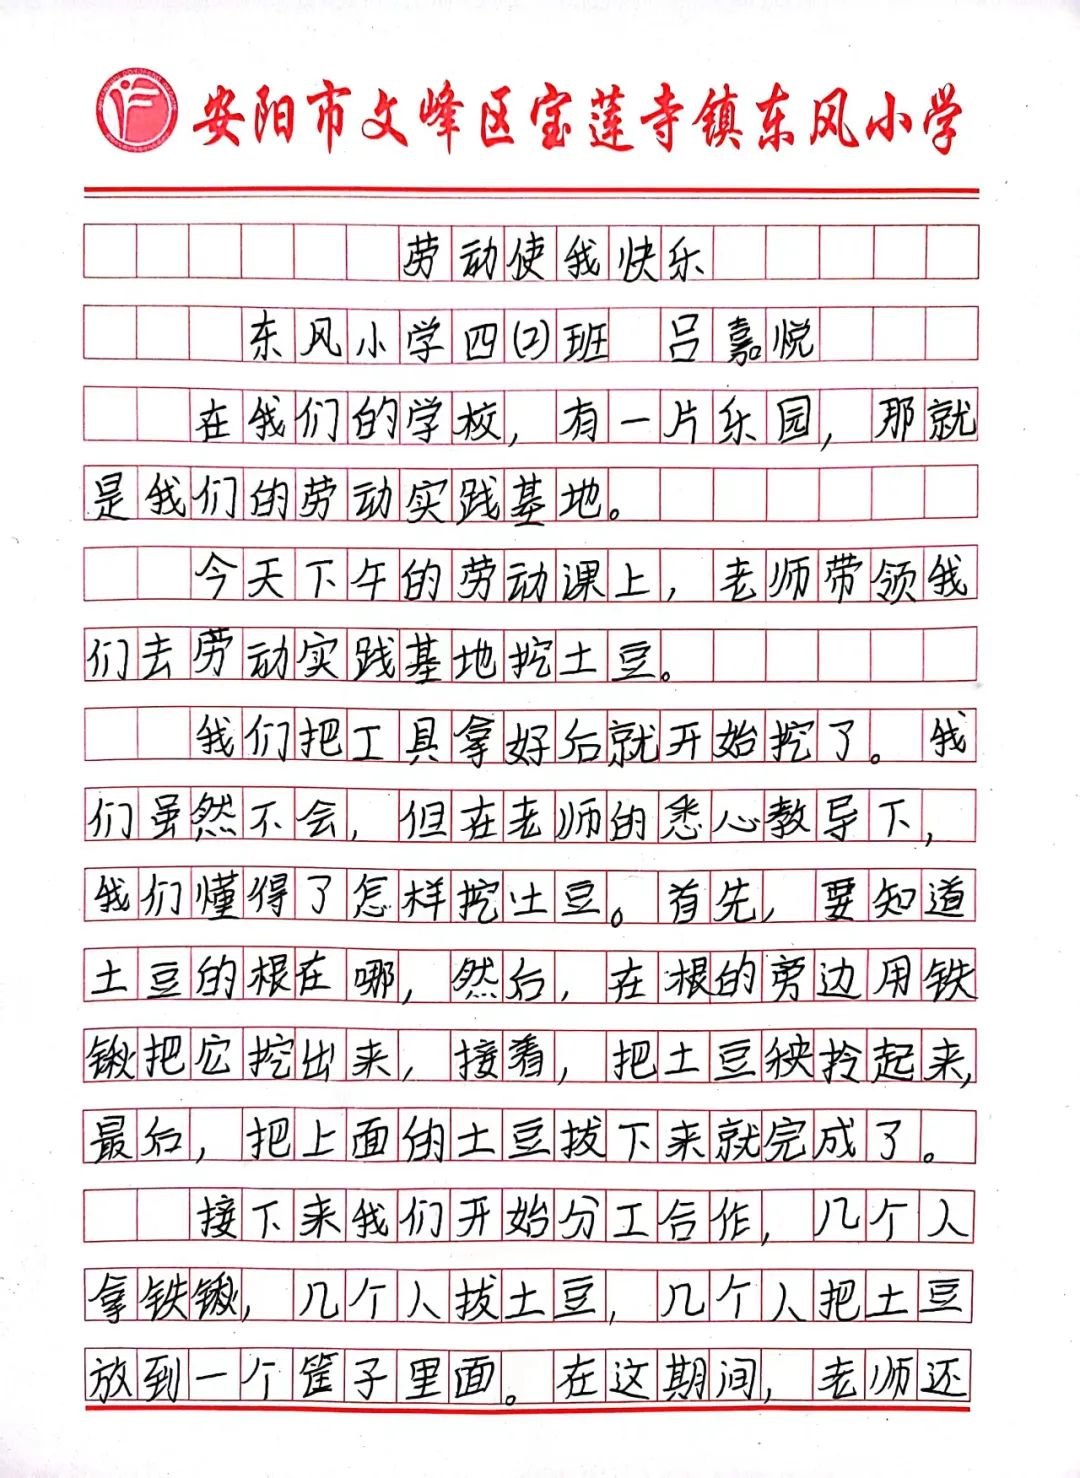 安阳市文峰区宝莲寺镇东风小学
劳动使我快乐
东风小学四(2)班 吕嘉悦
在我们的学校，有一片乐园，那就
是我们的劳动实践基地。
今天下午的劳动课上，老师带领我
们去劳动实践基地挖土豆。
我们把工具拿好后就开始挖了。我
们虽然不会，但在老师的悉心教导下，
我们懂得了怎样挖土豆。首先，要知道
土豆的根在哪，然后，在根的旁边用铁
锹把它挖出来，接着，把土豆秧拎起来，
最后，把上面的土豆拔下来就完成了。
接下来我们开始分工合作，几个人
拿铁锹，几个人拔土豆，几个人把土豆
放到一个筐子里面。在这期间，老师还